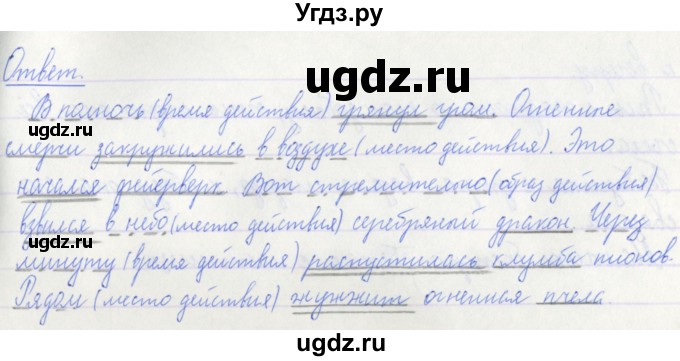 Угдз.ру
Ответ.
ugdz.ru
В полночь (время действия) грянул гром. Огненные
ugdz.ru
ugdz.ru
смерчи закружились в воздухе (место действия). Это
начался фейерверк. Вот стремительно (образ действия)
взвился в небо (место действия) серебряный дракон. Через
минуту (время действия) распустилась клумба пионов.
ugdz.ru
ugdz.ru
Рядом (место действия) жужжит огненная пчела.
ugdz.ru